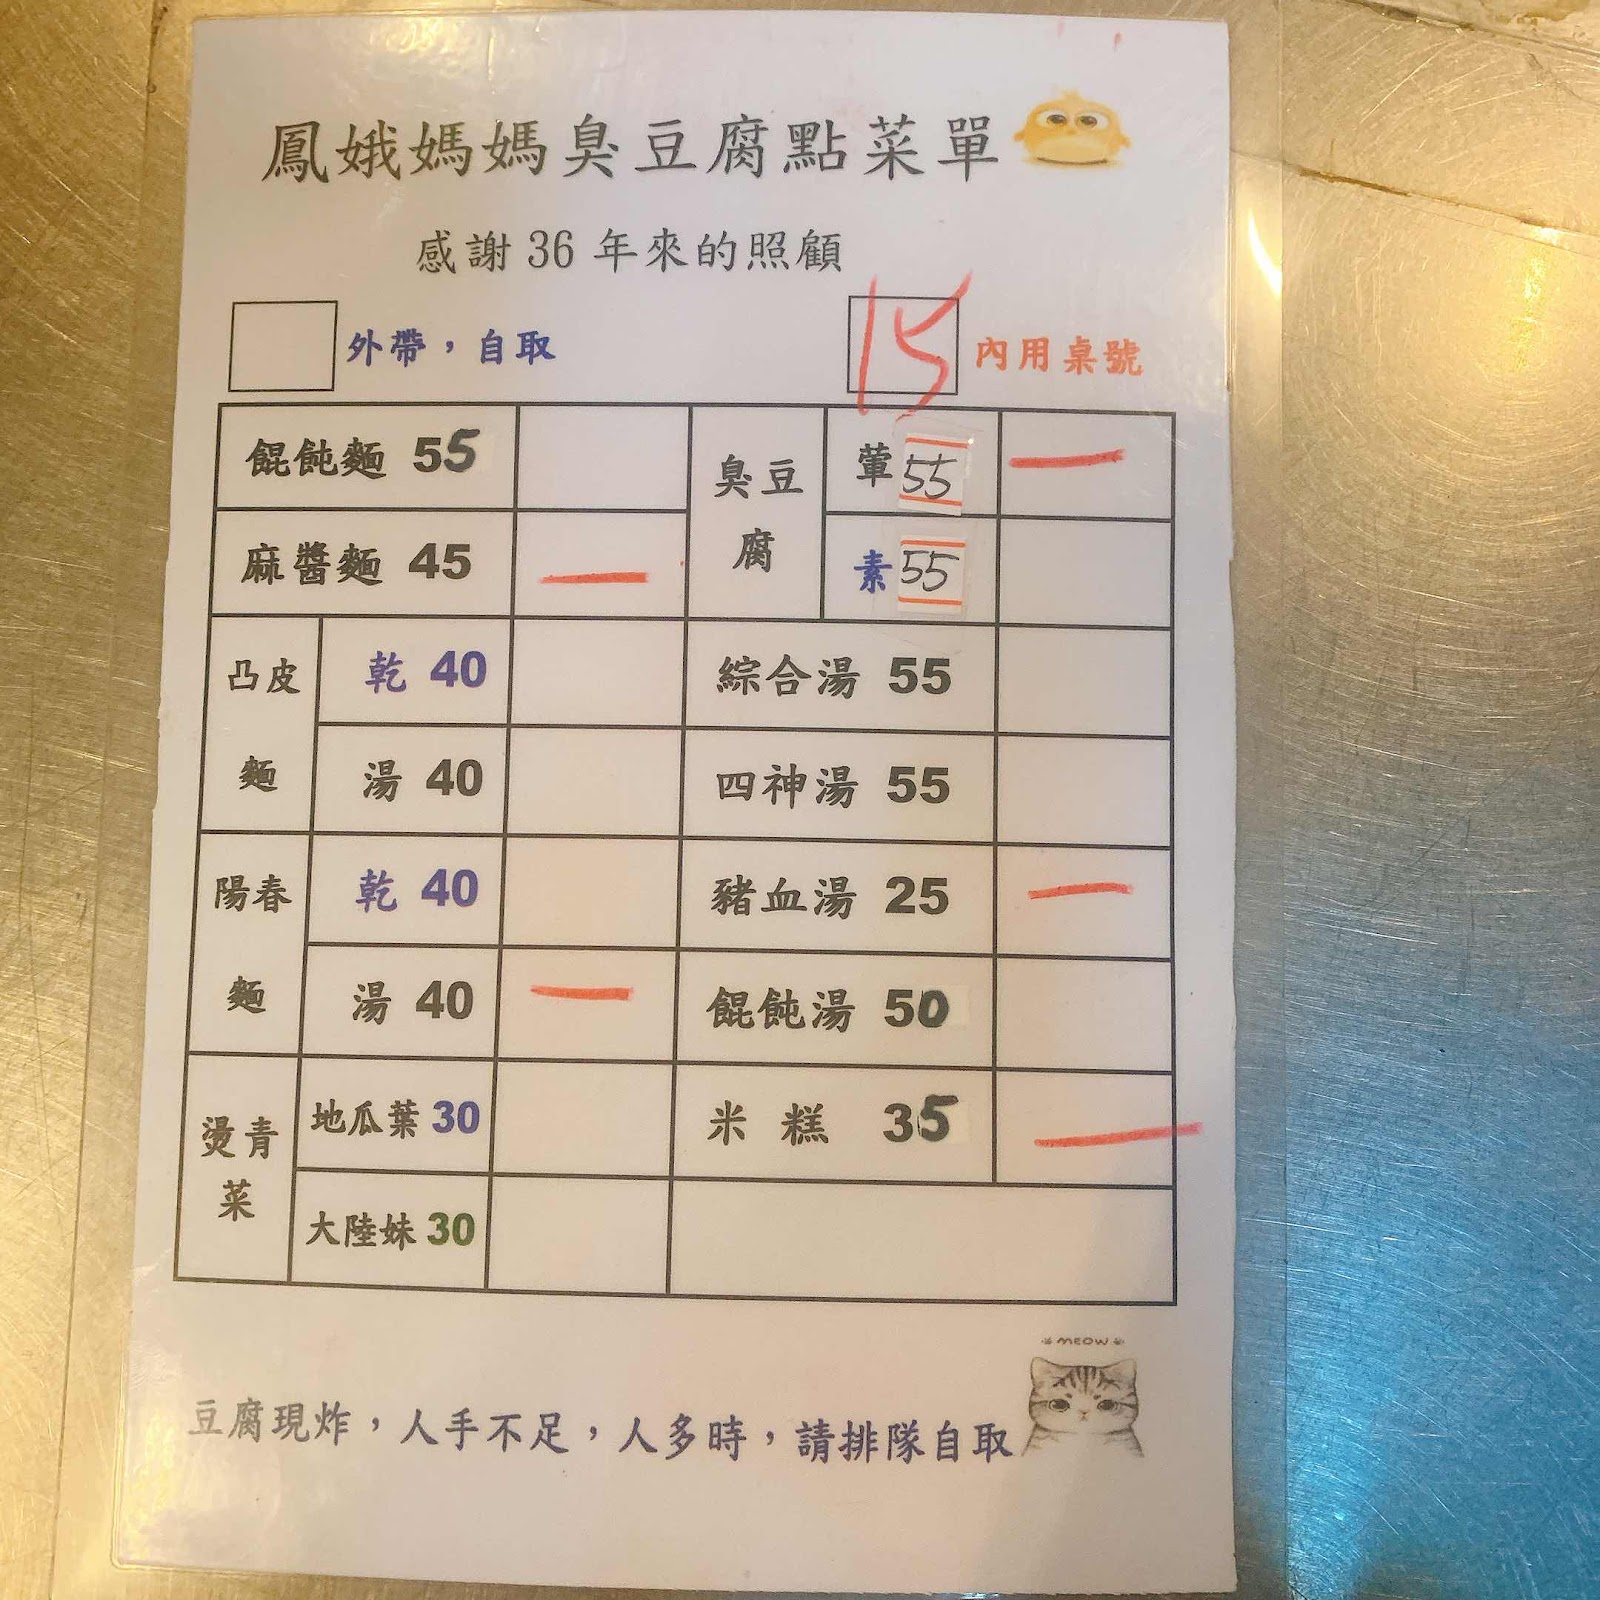 鳳娥媽媽臭豆腐點菜單
感謝 36 年來的照顧
外帶，自取
15 內用桌號
餛飩麵 55
臭豆腐
葷 55 一
麻醬麵 45 一
素 55
凸皮麵
乾 40
綜合湯 55
湯 40
四神湯 55
陽春麵
乾 40
豬血湯 25 一
湯 40 一
餛飩湯 50
燙青菜
地瓜葉 30
米糕 35 一
大陸妹 30
MEOW
豆腐現炸，人手不足，人多時，請排隊自取